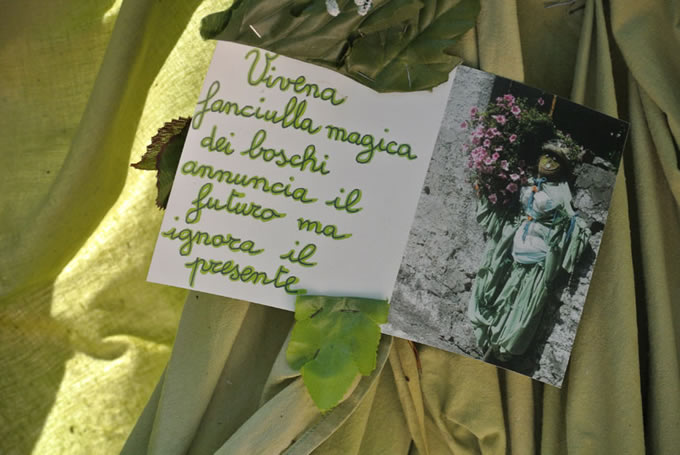 Vivena
fanciulla magica
dei boschi
annuncia il
futuro ma
ignora il
presente